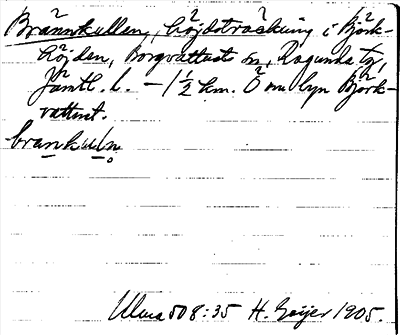 Brännkullen, höjdsträckning i Björk-
höjden, Borgvattnets sn, Ragunda tg,
Jämtl. l. – 1½ km. Ö om byn Björk-
vattnet.
brankuln̥
Ulma 508:35 H. Geijer 1905.